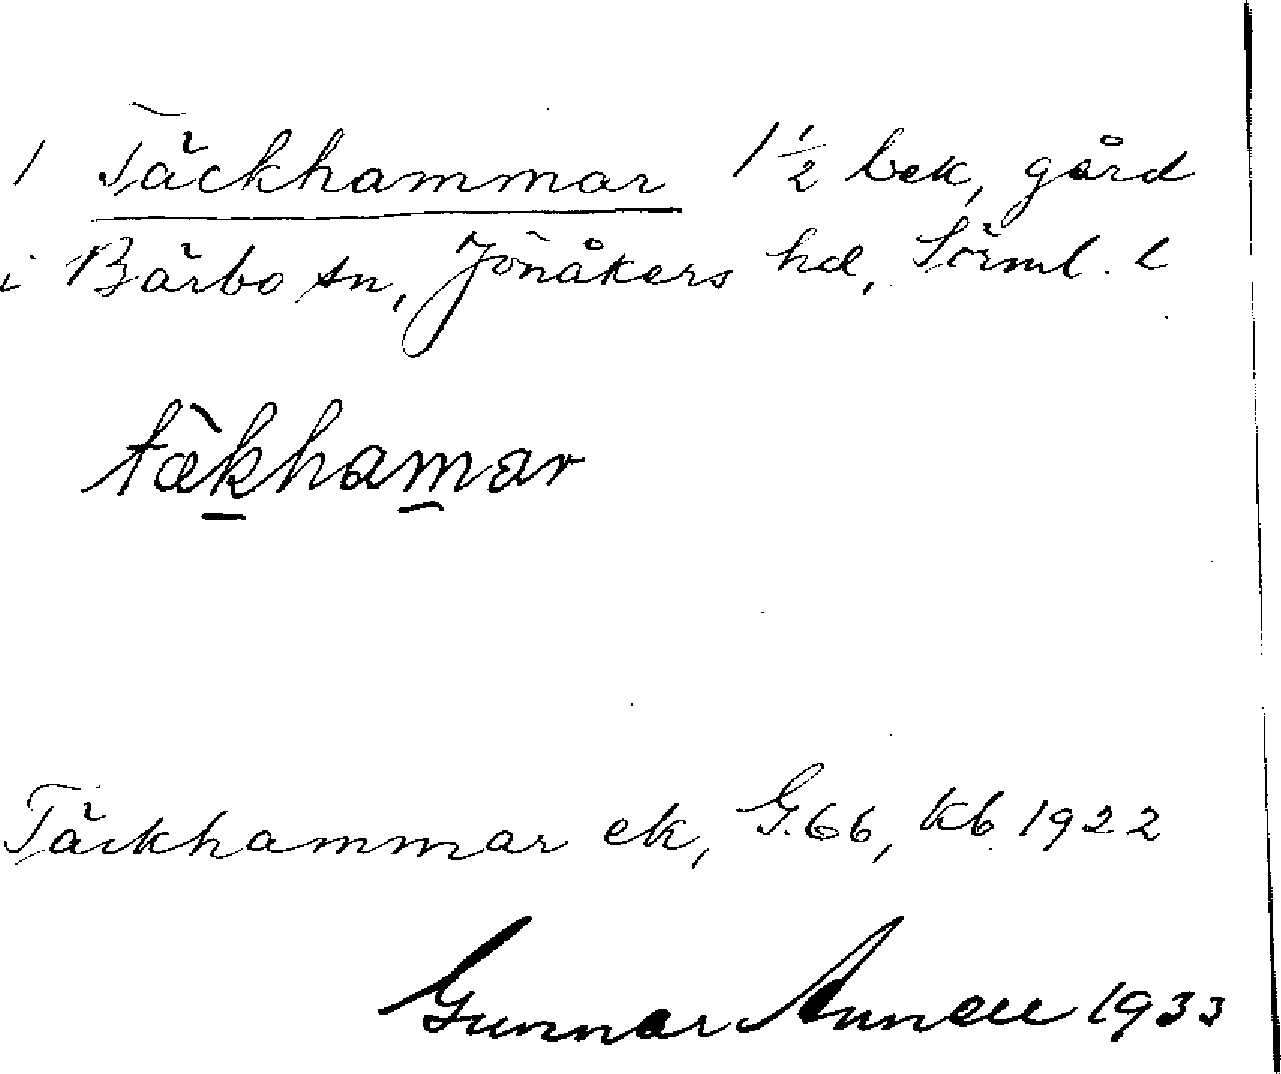 1 Täckhammar 1 1/2 bek, gård
i Bärbo sn, Jönåkers hd, Sörml. l
tæ̀khamar
Täckhammar ek, G.66, kb 1922
Gunnar Annell 1933